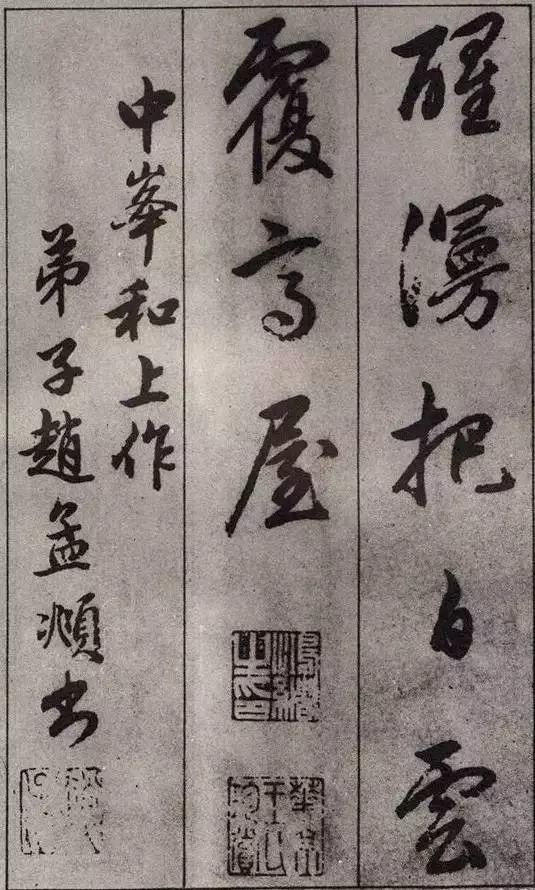 醒漫把白雲
覆高屋
中峯和上作
弟子趙孟頫書